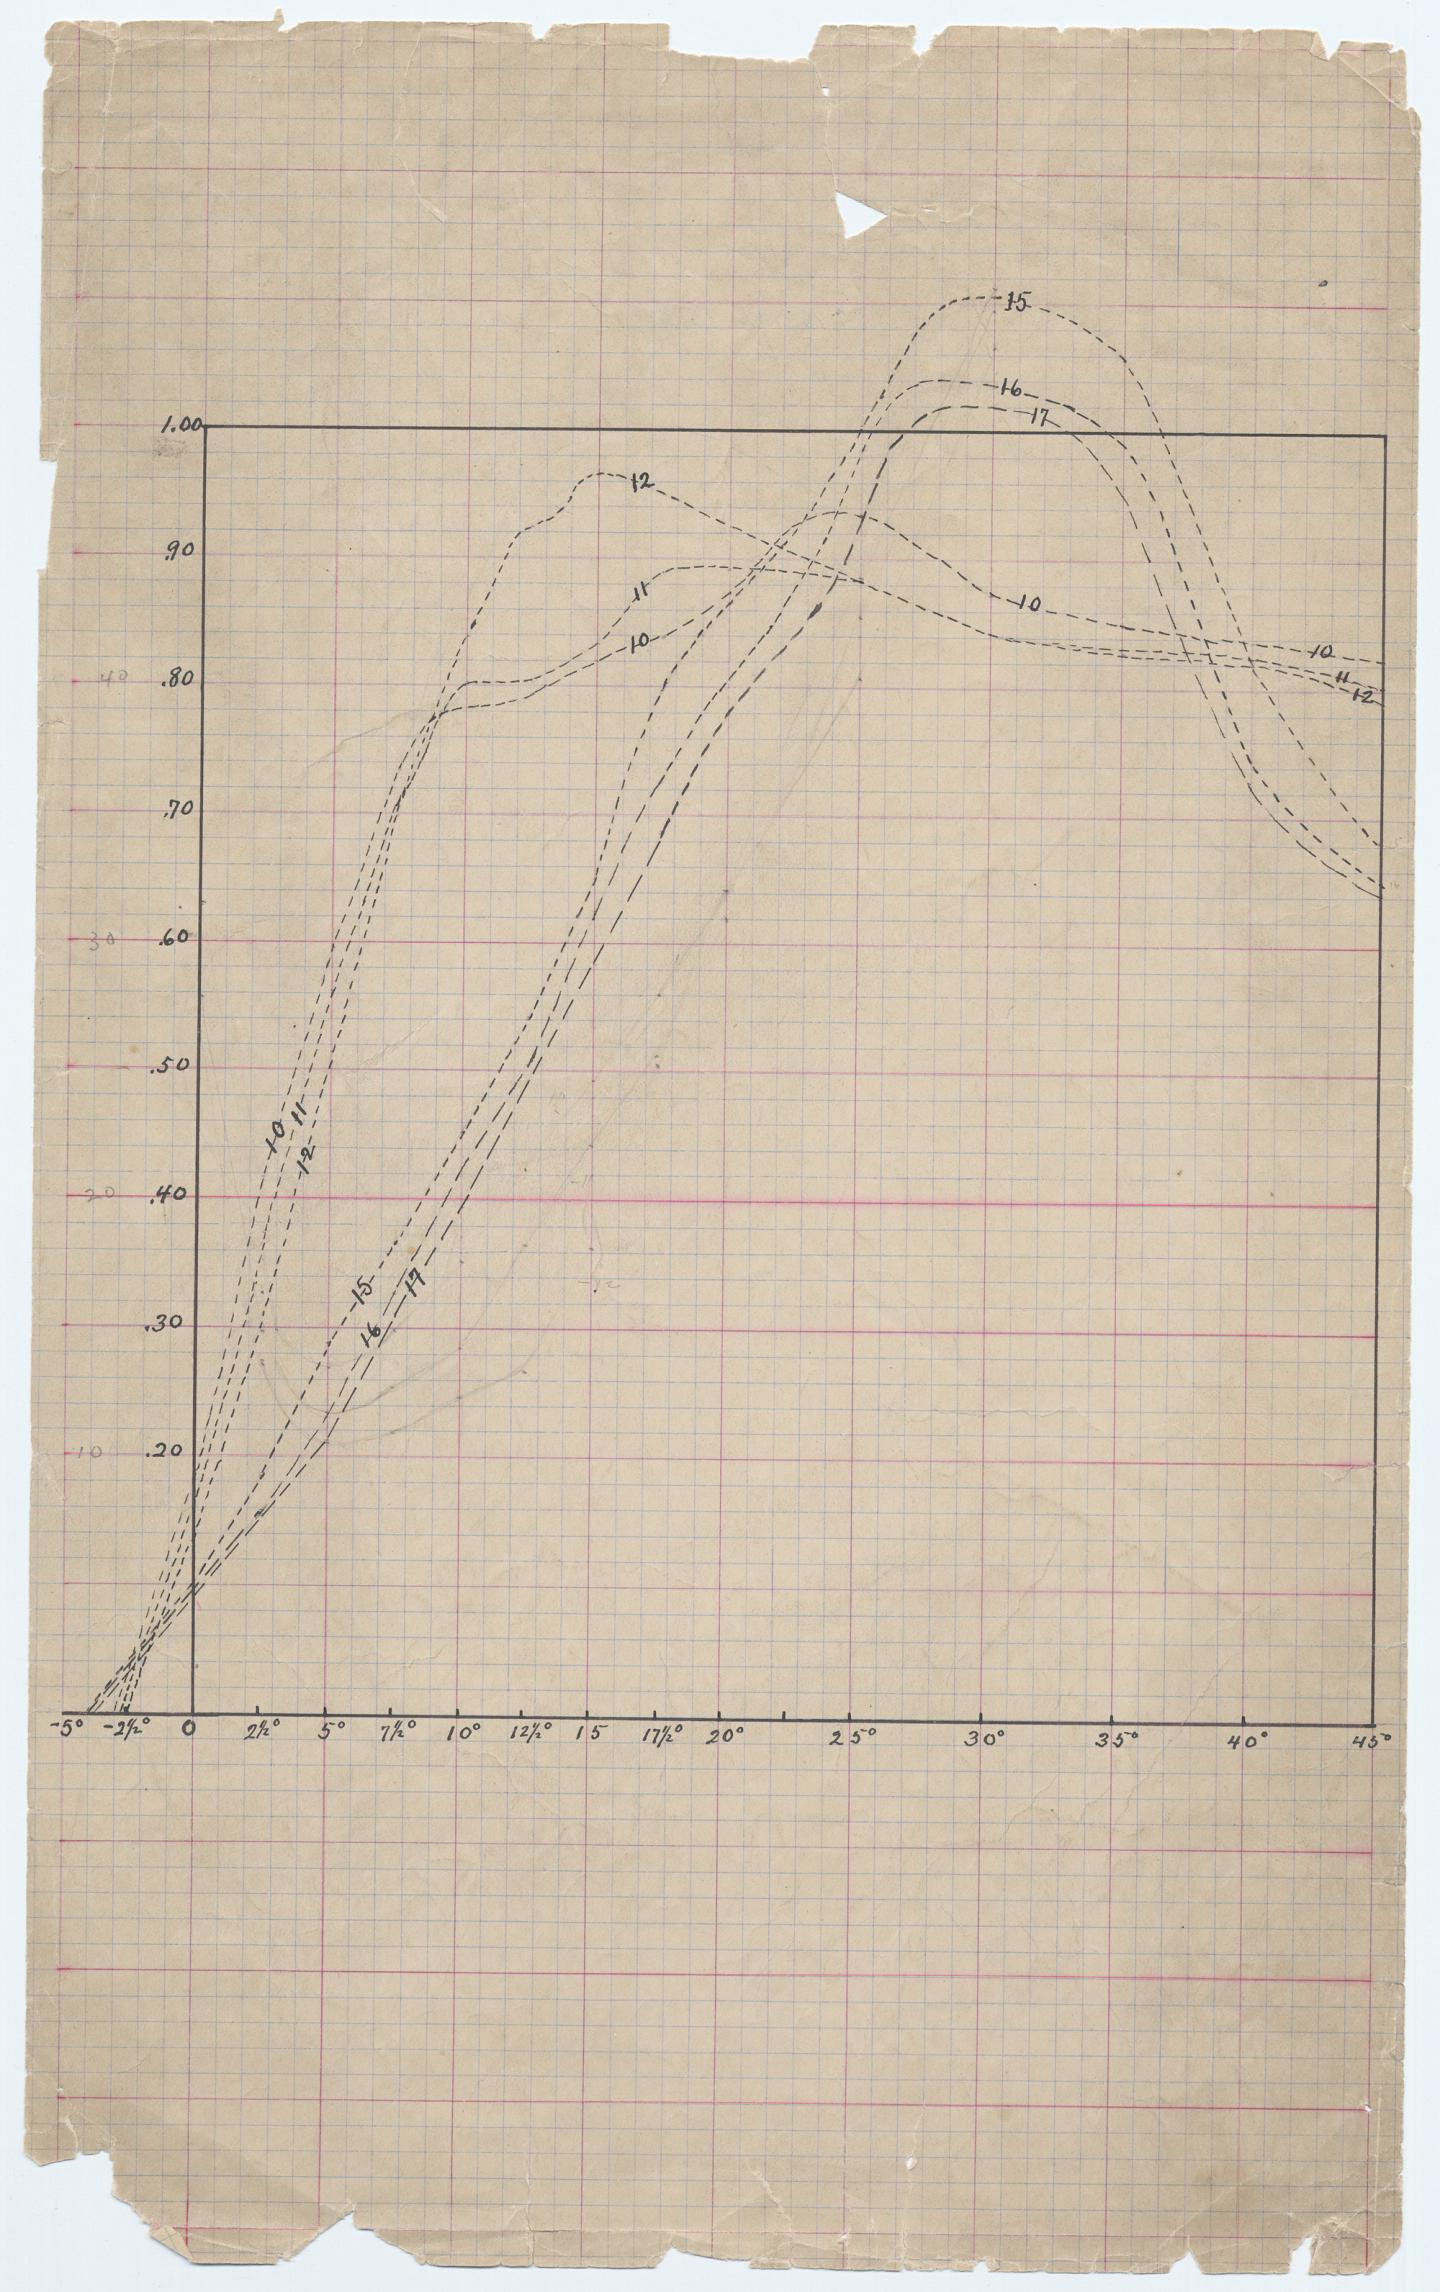 15
16
17
1.00
12
.90
11
10
10
10
40 .80
11
12
.70
30 .60
.50
11
10
12
20 .40
15
17
16
.30
10 .20
-5° -2½° 0 2½° 5° 7½° 10° 12½° 15 17½° 20° 25° 30° 35° 40° 45°